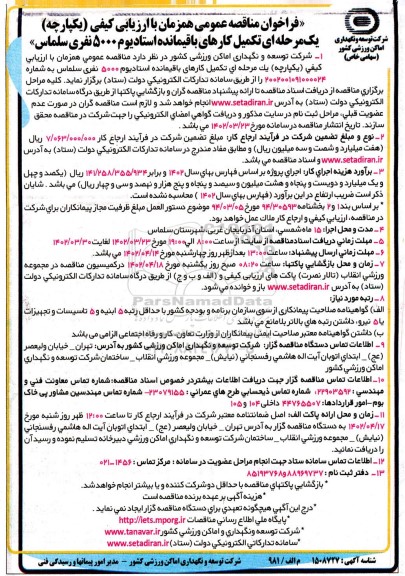 شرکت توسعه و نگهداری
اماکن ورزشی کشور
(سهامی خاص)
«فراخوان مناقصه عمومی همزمان با ارزیابی کیفی (یکپارچه)
یک‌مرحله‌ای تکمیل کارهای باقیمانده استادیوم ۵۰۰۰ نفری سلماس»
۱– شرکت توسعه و نگهداری اماکن ورزشی کشور در نظر دارد مناقصه عمومی همزمان با ارزیابی
کیفی (یکپارچه) یک مرحله ای تکمیل کارهای باقیمانده استادیوم ۵۰۰۰ نفری سلماس به شماره
۲۰۰۲۰۰۱۰۹۱۰۰۰۰۲۴ را از طریق سامانه تدارکات الکترونیکی دولت (ستاد) برگزار نماید. کلیه مراحل
برگزاری مناقصه از دریافت اسناد مناقصه تا ارائه پیشنهاد مناقصه گران و بازگشایی پاکتها از طریق درگاه سامانه تدارکات
الکترونیکی دولت (ستاد) به آدرس www.setadiran.ir انجام خواهد شد و لازم است مناقصه گران در صورت عدم
عضویت قبلی، مراحل ثبت نام در سایت مذکور و دریافت گواهی امضای الکترونیکی را جهت شرکت در مناقصه محقق
سازند. تاریخ انتشار مناقصه در سامانه مورخ ۱۴۰۲/۰۳/۲۳ می باشد.
۲– نوع و مبلغ تضمین شرکت در فرآیند ارجاع کار: مبلغ تضمین شرکت در فرآیند ارجاع کار ۷/۰۶۳/۰۰۰/۰۰۰ ریال
(هفت میلیارد و شصت و سه میلیون ریال) و مطابق مفاد مندرج در سامانه تدارکات الکترونیکی دولت (ستاد) به آدرس
www.setadiran.ir و اسناد مناقصه می باشد.
۳– برآورد هزینه اجرای کار: اجرای پروژه بر اساس فهارس بهای سال ۱۴۰۲ و برابر ۱۴۱/۲۵۸/۳۵۵/۹۳۴ ریال (یکصد و چهل
و یک میلیارد و دویست و پنجاه و هشت میلیون و سیصد و پنجاه و پنج هزار و نهصد و سی و چهار ریال) می باشد. شایان
ذکر است ضریب ارتفاع در این برآورد (فهارس بهای سال ۱۴۰۲) محاسبه نشده است.
* بر اساس بند ۲ بخشنامه ۹۴/۳۰۵۹۳ مورخ ۹۴/۰۳/۰۵ موضوع دستورالعمل مبلغ ظرفیت مجاز پیمانکاران برای شرکت
در مناقصه، ارزیابی کیفی و ارجاع کار ملاک عمل خواهد بود.
۴– مدت و محل اجرا: ۱۵ ماه شمسی، استان آذربایجان غربی، شهرستان سلماس
۵– مهلت زمانی دریافت اسناد مناقصه از سایت: از ساعت ۸:۰۰ الی ۱۹:۰۰ مورخ ۱۴۰۲/۰۳/۲۳ لغایت ۱۴۰۲/۰۳/۳۰
۶– مهلت زمانی ارسال پیشنهاد: ساعت ۱۳:۰۰ بعدازظهر روز چهارشنبه مورخ ۱۴۰۲/۰۴/۱۴ می باشد.
۷– زمان و محل بازگشایی پاکتها: ساعت ۰۸:۴۰ صبح روز یکشنبه مورخ ۱۴۰۲/۰۴/۱۸ در کمیسیون مناقصه در مجموعه
ورزشی انقلاب (تالار نصرت) پاکت های ارزیابی کیفی و (الف و ب و ج) از طریق درگاه سامانه تدارکات الکترونیکی دولت
(ستاد) به آدرس www.setadiran.ir باز و خوانده می شود.
۸– رتبه مورد نیاز:
الف) گواهینامه صلاحیت پیمانکاری از سوی سازمان برنامه و بودجه کشور با حداقل رتبه ۵ ابنیه و ۵ تاسیسات و تجهیزات
یا ۵ نیرو، داشتن رتبه های بالاتر بلامانع می باشد
ب) داشتن گواهینامه معتبر صلاحیت ایمنی پیمانکاران از وزارت تعاون، کار و رفاه اجتماعی الزامی می باشد
۹– اطلاعات تماس دستگاه مناقصه گزار: شرکت توسعه و نگهداری اماکن ورزشی کشور به آدرس: تهران _ خیابان ولیعصر
(عج) _ ابتدای اتوبان آیت اله هاشمی رفسنجانی (نیایش) _ مجموعه ورزشی انقلاب _ ساختمان شرکت توسعه و نگهداری
اماکن ورزشی کشور
۱۰– اطلاعات تماس مناقصه گزار جهت دریافت اطلاعات بیشتر در خصوص اسناد مناقصه: شماره تماس معاونت فنی و
مهندسی: ۲۲۹۰۳۵۹۲ شماره تماس ذیحسابی طرح های عمرانی: ۲۲۰۷۹۱۵۵ شماره تماس مهندسین مشاور پی خاک
بوم–امور قراردادها: ۴۴۷۶۵۵۰۷ داخلی ۱۰۴ و ۱۰۵
۱۱– زمان و محل ارائه پاکت الف: اصل ضمانتنامه معتبر شرکت در فرآیند ارجاع کار تا ساعت ۱۲:۰۰ ظهر روز شنبه مورخ
۱۴۰۲/۰۴/۱۷ به دستگاه مناقصه گزار به آدرس تهران _ خیابان ولیعصر (عج) _ ابتدای اتوبان آیت اله هاشمی رفسنجانی
(نیایش) _ مجموعه ورزشی انقلاب _ ساختمان شرکت توسعه و نگهداری اماکن ورزشی دبیرخانه تسلیم نموده و رسید آن
را دریافت نمایند.
۱۲– اطلاعات تماس سامانه ستاد جهت انجام مراحل عضویت در سامانه: مرکز تماس: ۱۴۵۶–۰۲۱
۱۳– دفتر ثبت نام: ۸۸۹۶۹۷۳۷ و ۸۵۱۹۳۷۶۸
* بازگشایی پاکتهای مناقصه با حداقل دو شرکت کننده و یا بیشتر انجام خواهد شد.
* هزینه آگهی بر عهده برنده مناقصه است
* درج این آگهی هیچگونه تعهدی برای دستگاه مناقصه گزار ایجاد نمی نماید.
* پایگاه ملی اطلاع رسانی مناقصات http://iets.mporg.ir
* شرکت توسعه و نگهداری و اماکن ورزشی کشور www.tanavar.ir
* سامانه تدارکاتی الکترونیکی دولت (ستاد) www.setadiran.ir
شناسه آگهی: ۱۵۰۸۷۲۷ م الف / ۹۸۱
شرکت توسعه و نگهداری اماکن ورزشی کشور – مدیر امور پیمانها و رسیدگی فنی